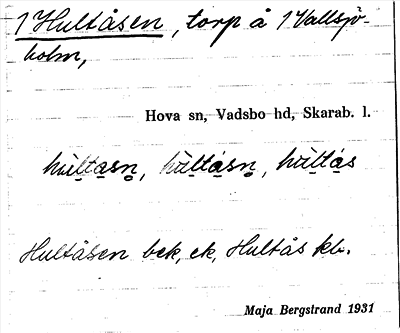 1 Hultåsen, torp å 1 Vallsjö-
holm,
Hova sn, Vadsbo hd, Skarab. l.
Hultåsen bek, ek, Hultås kb.
Maja Bergstrand 1931